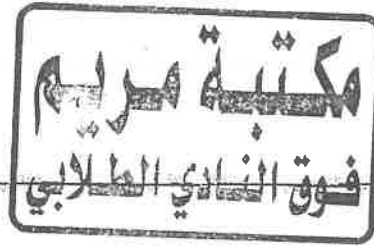 مكتبة مريم
فوق النادي الطلابي